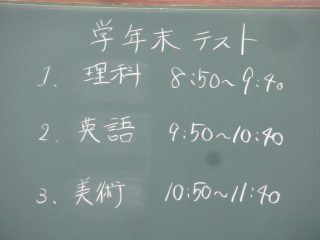 学年末 テスト
1. 理科 8:50~9:40
2. 英語 9:50~10:40
3. 美術 10:50~11:40